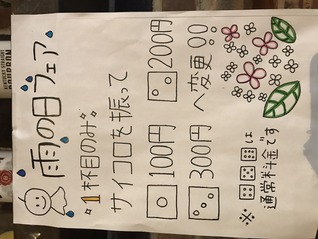 雨の日フェア
"1杯目のみ"
サイコロを振って
⚀ 100円 ⚁ 200円
⚂ 300円 へ変更!!
※ ⚃ ⚄ ⚅ は
通常料金です
KENTUCKY STRAIGHT
BOURBON